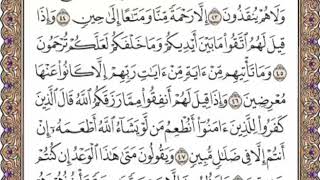 وَلَا هُمْ يُنقَذُونَ ٤٣ إِلَّا رَحْمَةً مِّنَّا وَمَتَاعًا إِلَىٰ حِينٍ ٤٤ وَإِذَا
قِيلَ لَهُمُ اتَّقُوا مَا بَيْنَ أَيْدِيكُمْ وَمَا خَلْفَكُمْ لَعَلَّكُمْ تُرْحَمُونَ
٤٥ وَمَا تَأْتِيهِم مِّنْ ءَايَةٍ مِّنْ ءَايَٰتِ رَبِّهِمْ إِلَّا كَانُوا عَنْهَا
مُعْرِضِينَ ٤٦ وَإِذَا قِيلَ لَهُمْ أَنفِقُوا مِمَّا رَزَقَكُمُ اللَّهُ قَالَ الَّذِينَ
كَفَرُوا لِلَّذِينَ ءَامَنُوا أَنُطْعِمُ مَن لَّوْ يَشَاءُ اللَّهُ أَطْعَمَهُ إِنْ
أَنتُمْ إِلَّا فِي ضَلَٰلٍ مُّبِينٍ ٤٧ وَيَقُولُونَ مَتَىٰ هَٰذَا الْوَعْدُ إِن كُنتُمْ